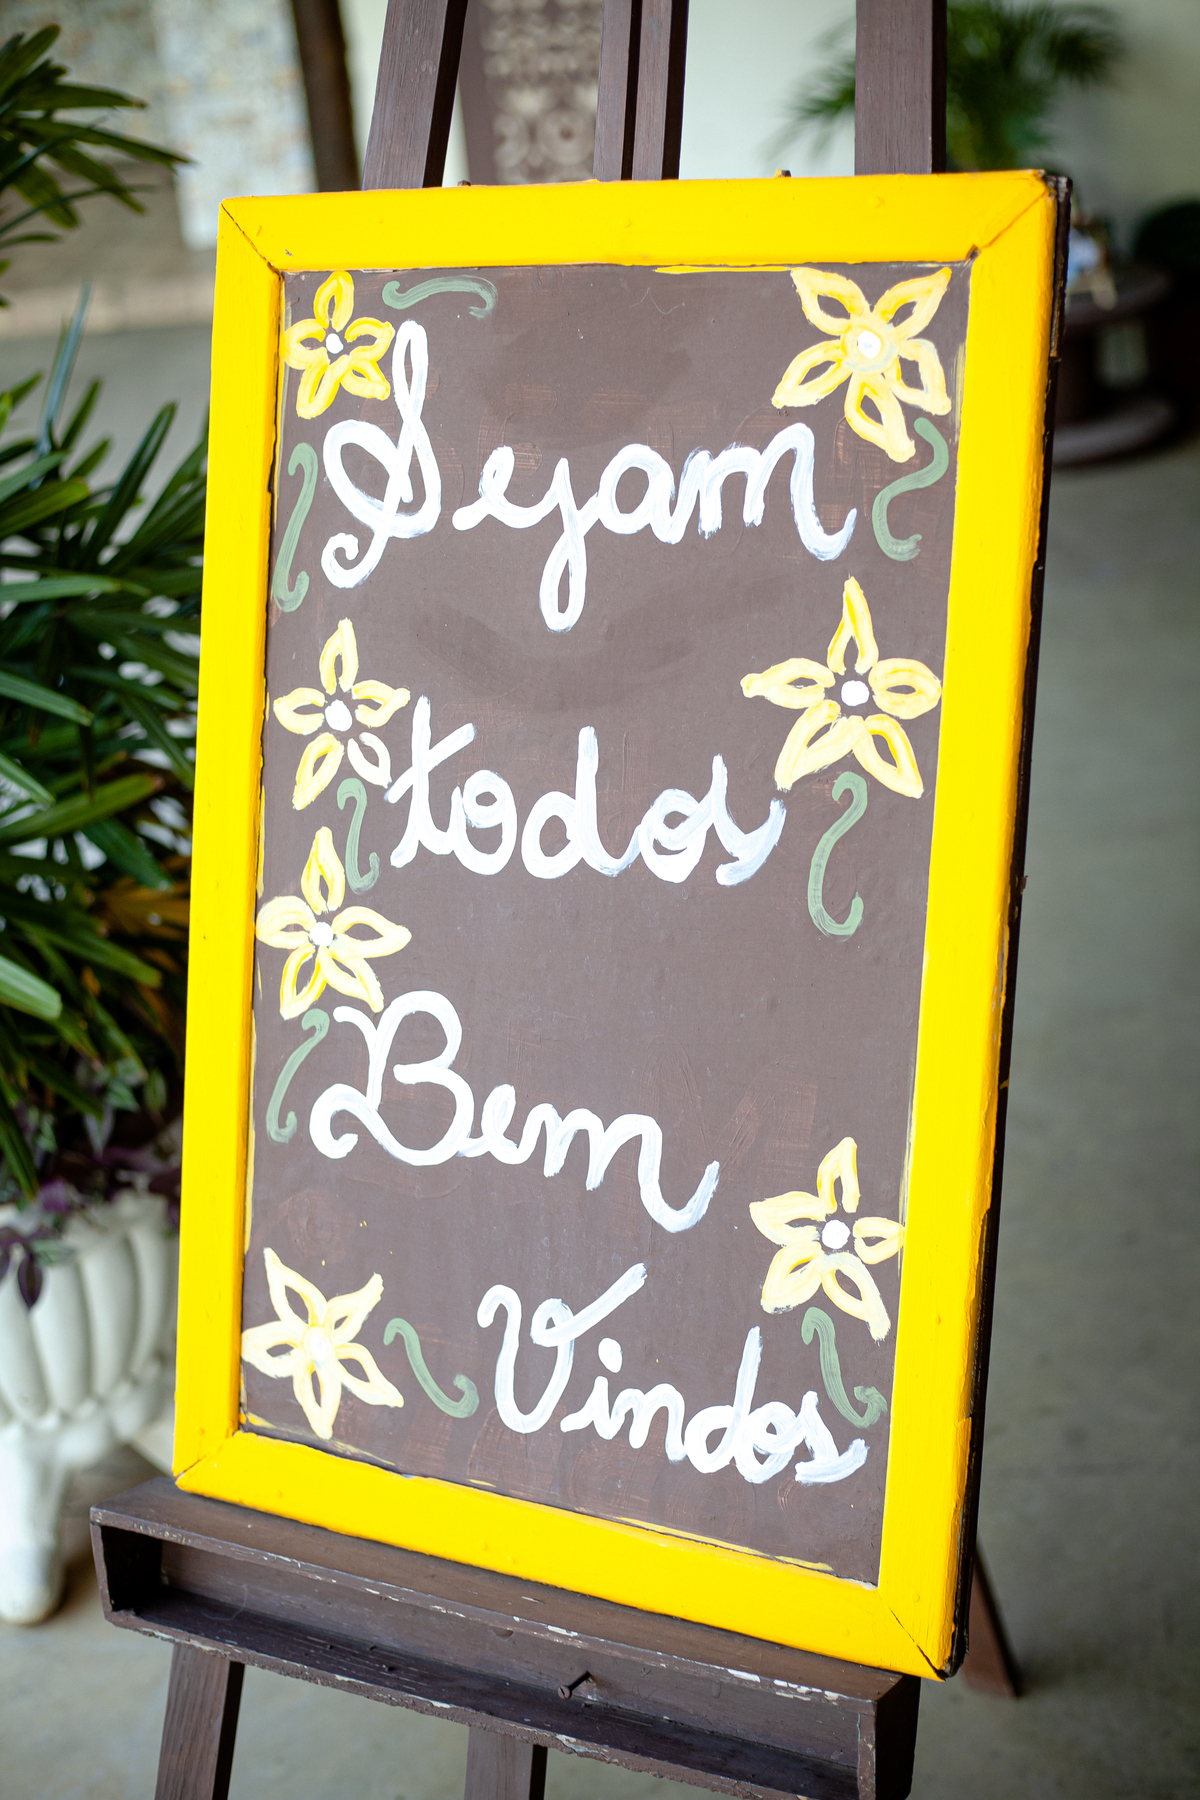 Sejam
todos
Bem
Vindos